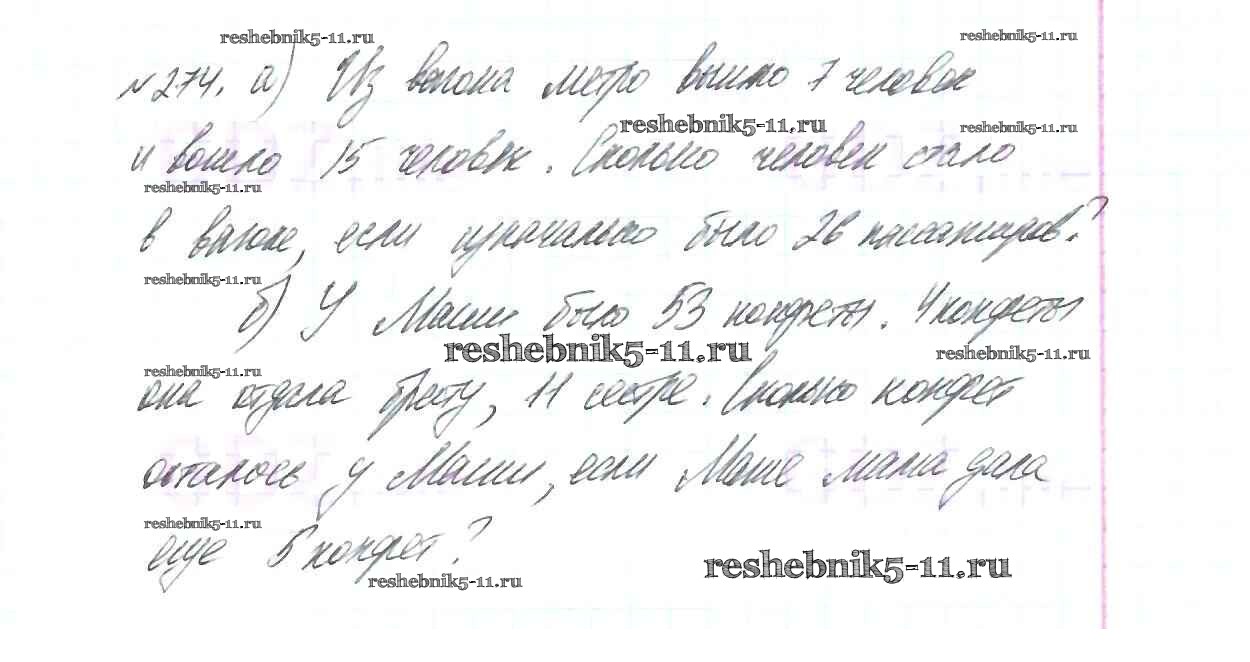 reshebnik5-11.ru
reshebnik5-11.ru
№274. а) Из вагона метро вышло 7 человек
reshebnik5-11.ru
reshebnik5-11.ru
и вошло 15 человек. Сколько человек стало
reshebnik5-11.ru
в вагоне, если изначально было 26 пассажиров?
reshebnik5-11.ru
б) У Маши было 53 конфеты. 4 конфеты
reshebnik5-11.ru
reshebnik5-11.ru
reshebnik5-11.ru
она отдала брату, 11 сестре. Сколько конфет
осталось у Маши, если Маше мама дала
reshebnik5-11.ru
еще 5 конфет?
reshebnik5-11.ru
reshebnik5-11.ru